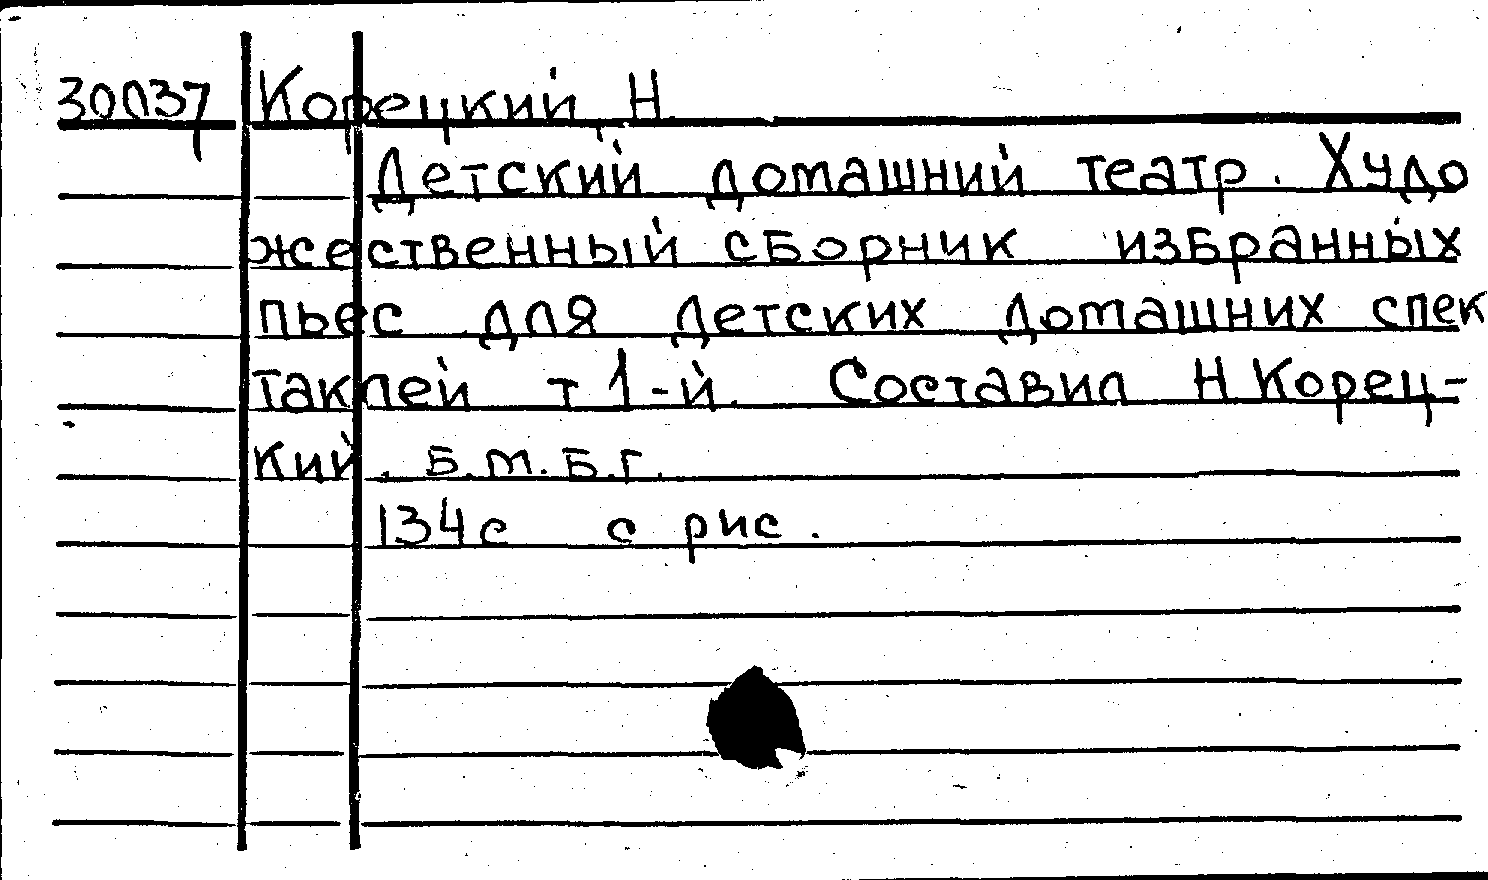 30037 Корецкий, Н.
Детский домашний театр. Худо
жественный сборник избранных
пьес для детских домашних спек
таклей т 1-й. Составил Н Корец-
кий. Б.м. Б.г.
134с с рис.